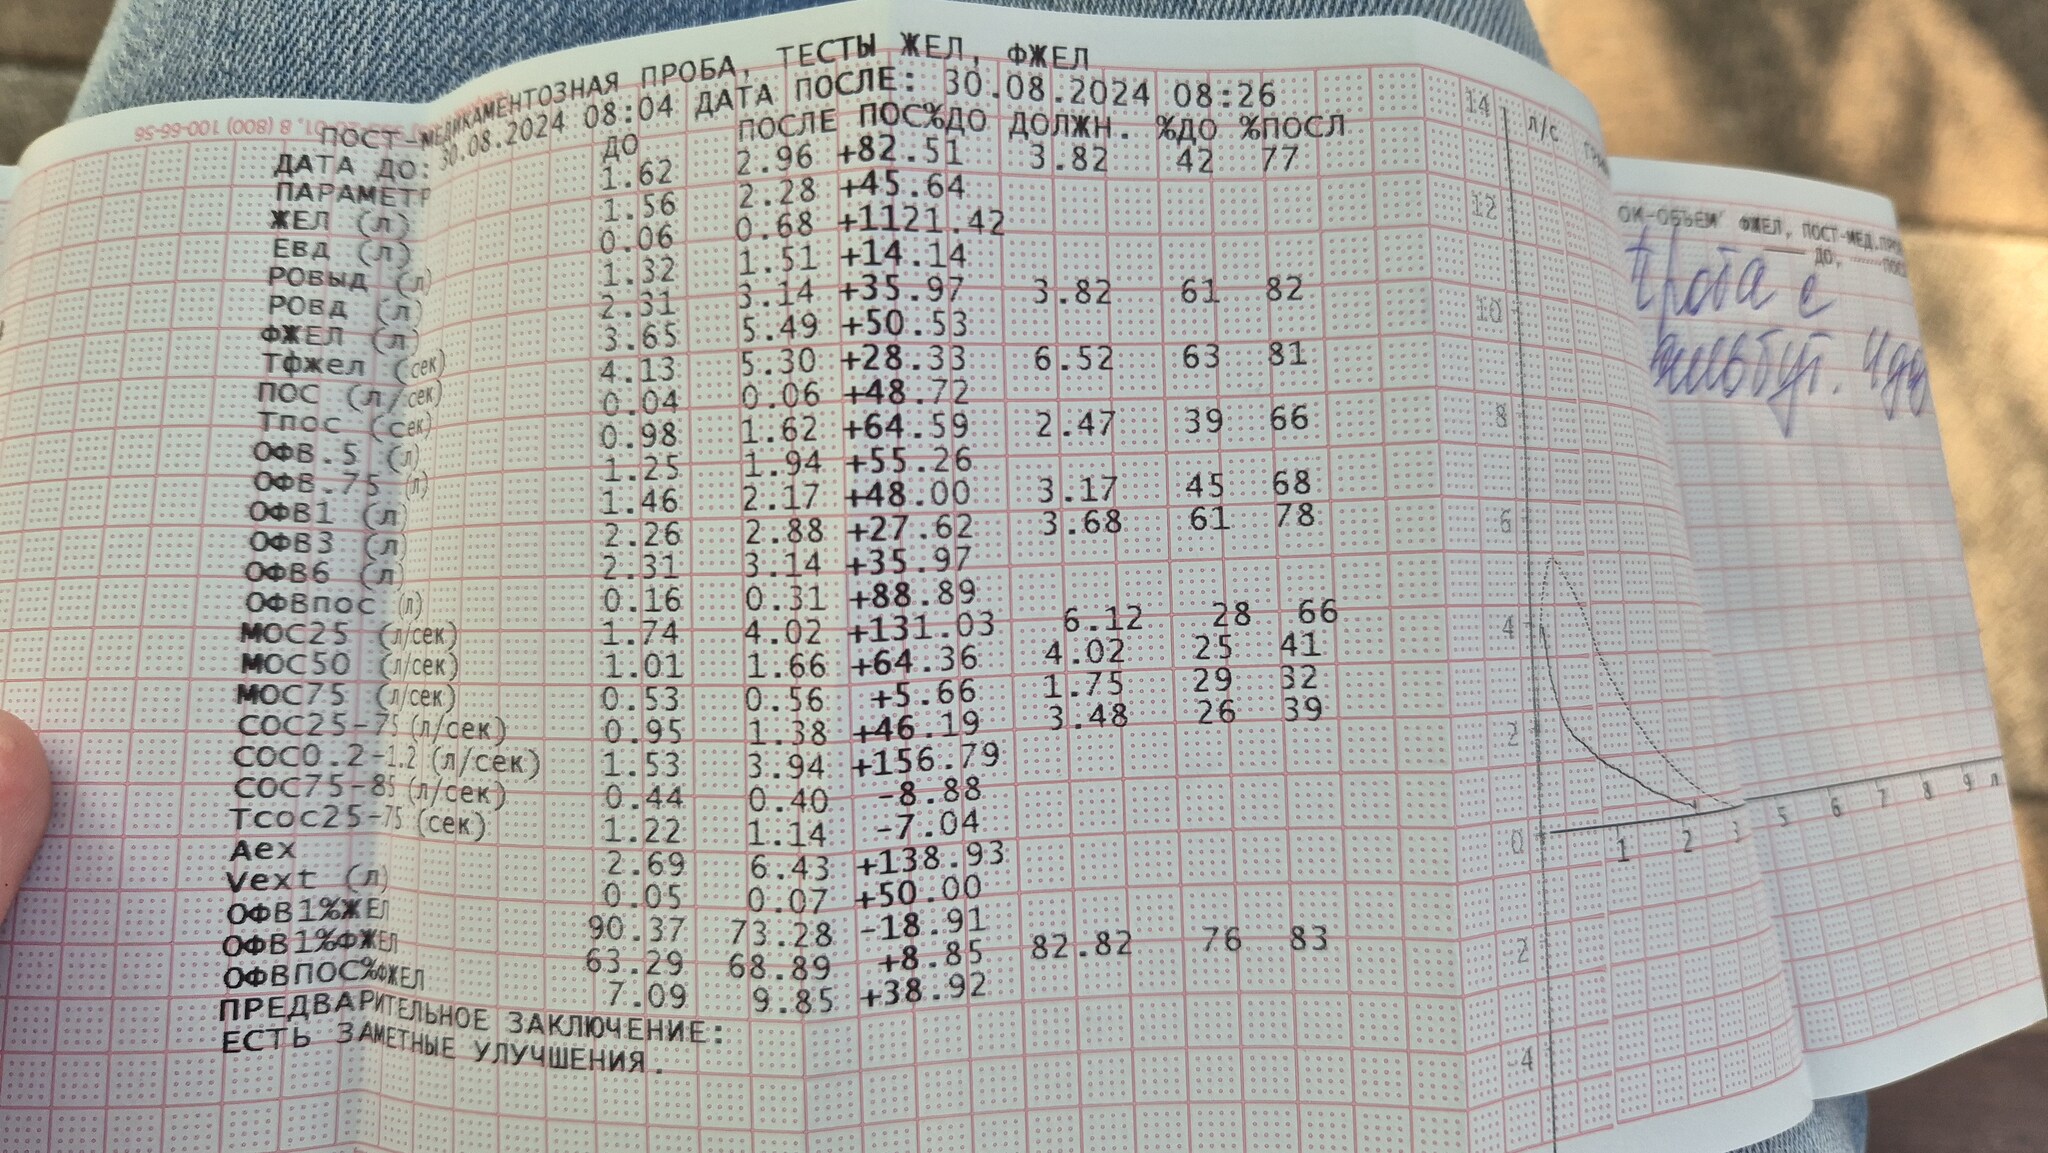 ПОСТ-МЕДИКАМЕНТОЗНАЯ ПРОБА, ТЕСТЫ ЖЕЛ, ФЖЕЛ
ДАТА ДО: 30.08.2024 08:04 ДАТА ПОСЛЕ: 30.08.2024 08:26
ПАРАМЕТР ДО ПОСЛЕ ПОС%ДО ДОЛЖН. %ДО %ПОСЛ
ЖЕЛ (л) 1.62 2.96 +82.51 3.82 42 77
ЕВД (л) 1.56 2.28 +45.64
РОВЫД (л) 0.06 0.68 +1121.42
РОВД (л) 1.32 1.51 +14.14
ФЖЕЛ (л) 2.31 3.14 +35.97 3.82 61 82
Тфжел (сек) 3.65 5.49 +50.53
ПОС (л/сек) 4.13 5.30 +28.33 6.52 63 81
Тпос (сек) 0.04 0.06 +48.72
ОФВ.5 (л) 0.98 1.62 +64.59 2.47 39 66
ОФВ.75 (л) 1.25 1.94 +55.26
ОФВ1 (л) 1.46 2.17 +48.00 3.17 45 68
ОФВ3 (л) 2.26 2.88 +27.62 3.68 61 78
ОФВ6 (л) 2.31 3.14 +35.97
ОФВпос (л) 0.16 0.31 +88.89
МОС25 (л/сек) 1.74 4.02 +131.03 6.12 28 66
МОС50 (л/сек) 1.01 1.66 +64.36 4.02 25 41
МОС75 (л/сек) 0.53 0.56 +5.66 1.75 29 32
СОС25-75(л/сек) 0.95 1.38 +46.19 3.48 26 39
СОС0.2-1.2(л/сек) 1.53 3.94 +156.79
СОС75-85(л/сек) 0.44 0.40 -8.88
ТСОС25-75(сек) 1.22 1.14 -7.04
Aex 2.69 6.43 +138.93
Vext (л) 0.05 0.07 +50.00
ОФВ1%ЖЕЛ 90.37 73.28 -18.91
ОФВ1%ФЖЕЛ 63.29 68.89 +8.85 82.82 76 83
ОФВПОС%ФЖЕЛ 7.09 9.85 +38.92
ПРЕДВАРИТЕЛЬНОЕ ЗАКЛЮЧЕНИЕ:
ЕСТЬ ЗАМЕТНЫЕ УЛУЧШЕНИЯ.
8 (800) 100-66-56
14 л/с
12
10
8
6
4
2
0 1 2 3 5 6 7 8 9 л
-2
-4
ОК-ОБЪЕМ ФЖЕЛ, ПОСТ-МЕД.ПРО
ДО,
Проба с